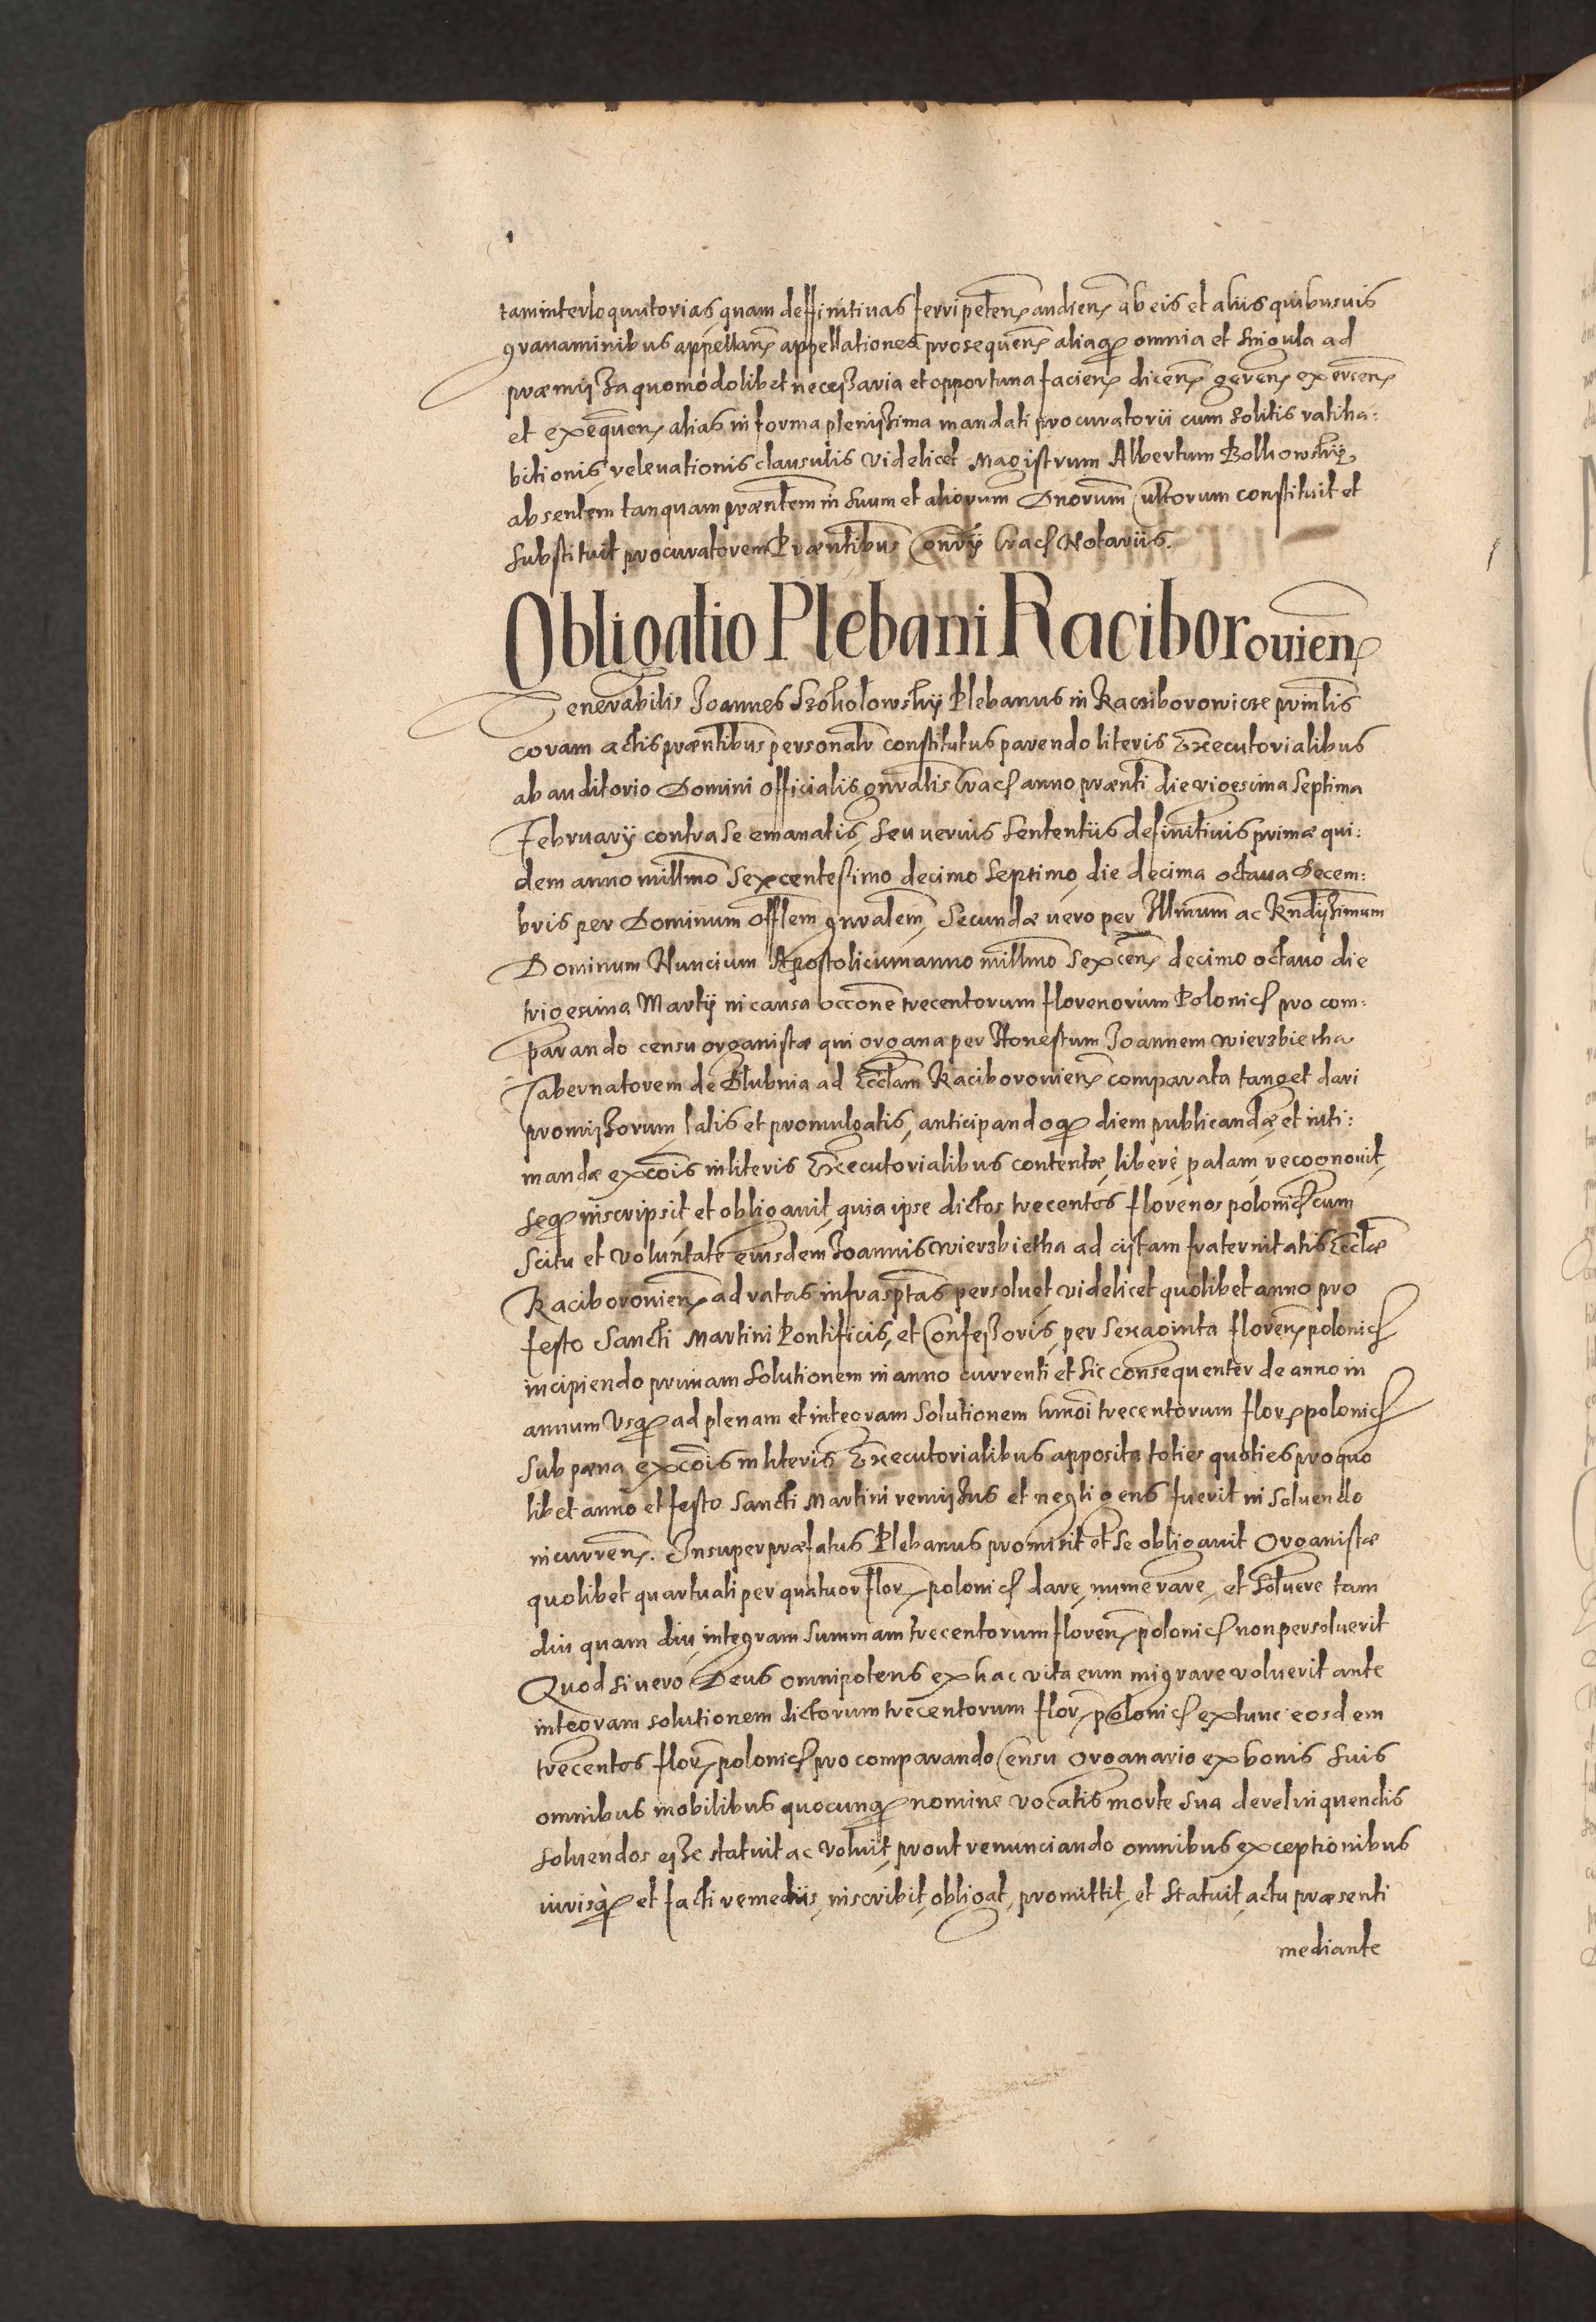 tam interloquutorias, quam deffinitivas ferri peten[does] audien[does] ab eis et aliis quibusuis
grauaminibus appellan appellationes prosequen aliaq omnia et singula ad
præmissa quomodolibet necessaria et opportuna facien dicen geren exercen
et exequen, alias in forma plenissima mandati procuratorii cum solitis ratiha:
bitionis, releuationis clausulis videlicet Magistrum Albertum
absentem tanquam præntem in suum et aliorum Dnorum constituit et
substituit procuratorem Præntibus Crac Notariis.
Obligatio Plebani Raciborouien
Venerabilis Joannes Szokolowsky Plebanus in Racziborowicze prinlis
coram actis præntibus personalr constitutus parendo literis Executorialibus
ab auditorio Domini Officialis gnralis Crac anno prænti die vigesima septima
February contra se emanatis, seu verius sententiis definitiuis primæ qui:
dem anno millmo sexcentesimo decimo septimo, die decima octaua Decem:
bris per Dominum Offlem gnralem, secundæ uero per Illmum ac Rndissimum
Dominum Nuncium Apostolicum anno millmo sexcen decimo octauo die
trigesima Martij in causa occone trecentorum florenorum Polonic pro com:
parando censu organistæ qui organa per Honestum Joannem wierzbietha
Tabernatorem de Dlubnia ad Eccliam Raciborouien comparata tanget dari
promissorum, latis et promulgatis, anticipandoq diem publicandæ et inti:
mandæ excois in literis Executorialibus contentæ, liberè, palam, recognouit,
seq inscripsit, et obligauit, quia ipse dictos trecentos florenos polonic cum
scitu et voluntate eiusdem Joannis wierzbietha ad cistam fraternitatis Eccliæ
Raciborouien ad ratas infrasptas persoluet, videlicet quolibet anno pro
festo Sancti Martini Pontificis, et Confessoris, per sexaginta floren polonic
incipiendo primam solutionem in anno currenti et sic consequenter de anno in
annum vsq ad plenam et integram solutionem hmoi trecentorum flor polonic
sub pœna excois in literis Executorialibus apposita toties quoties pro quo
libet anno et festo Sancti Martini remissus et negligens fuerit in soluendo
incurren. Insuper præfatus Plebanus promisit et se obligauit Organistæ
quolibet quartuali per quatuor flor polonic dare, numerare, et soluere tam
diu quam diu integram summam trecentorum floren polonic non persoluerit
Quod si uero Deus omnipotens ex hac vita eum migrare voluerit ante
integram solutionem dictorum trecentorum flor polonic extunc eosdem
trecentos flor polonic pro comparando Censu Organario ex bonis suis
omnibus mobilibus quocunq nomine vocatis morte sua derelinquendis
soluendos esse statuit ac voluit, prout renunciando omnibus exceptionibus
iurisq et facti remediis, inscribit, obligat, promittit, et statuit, actu præsenti
mediante